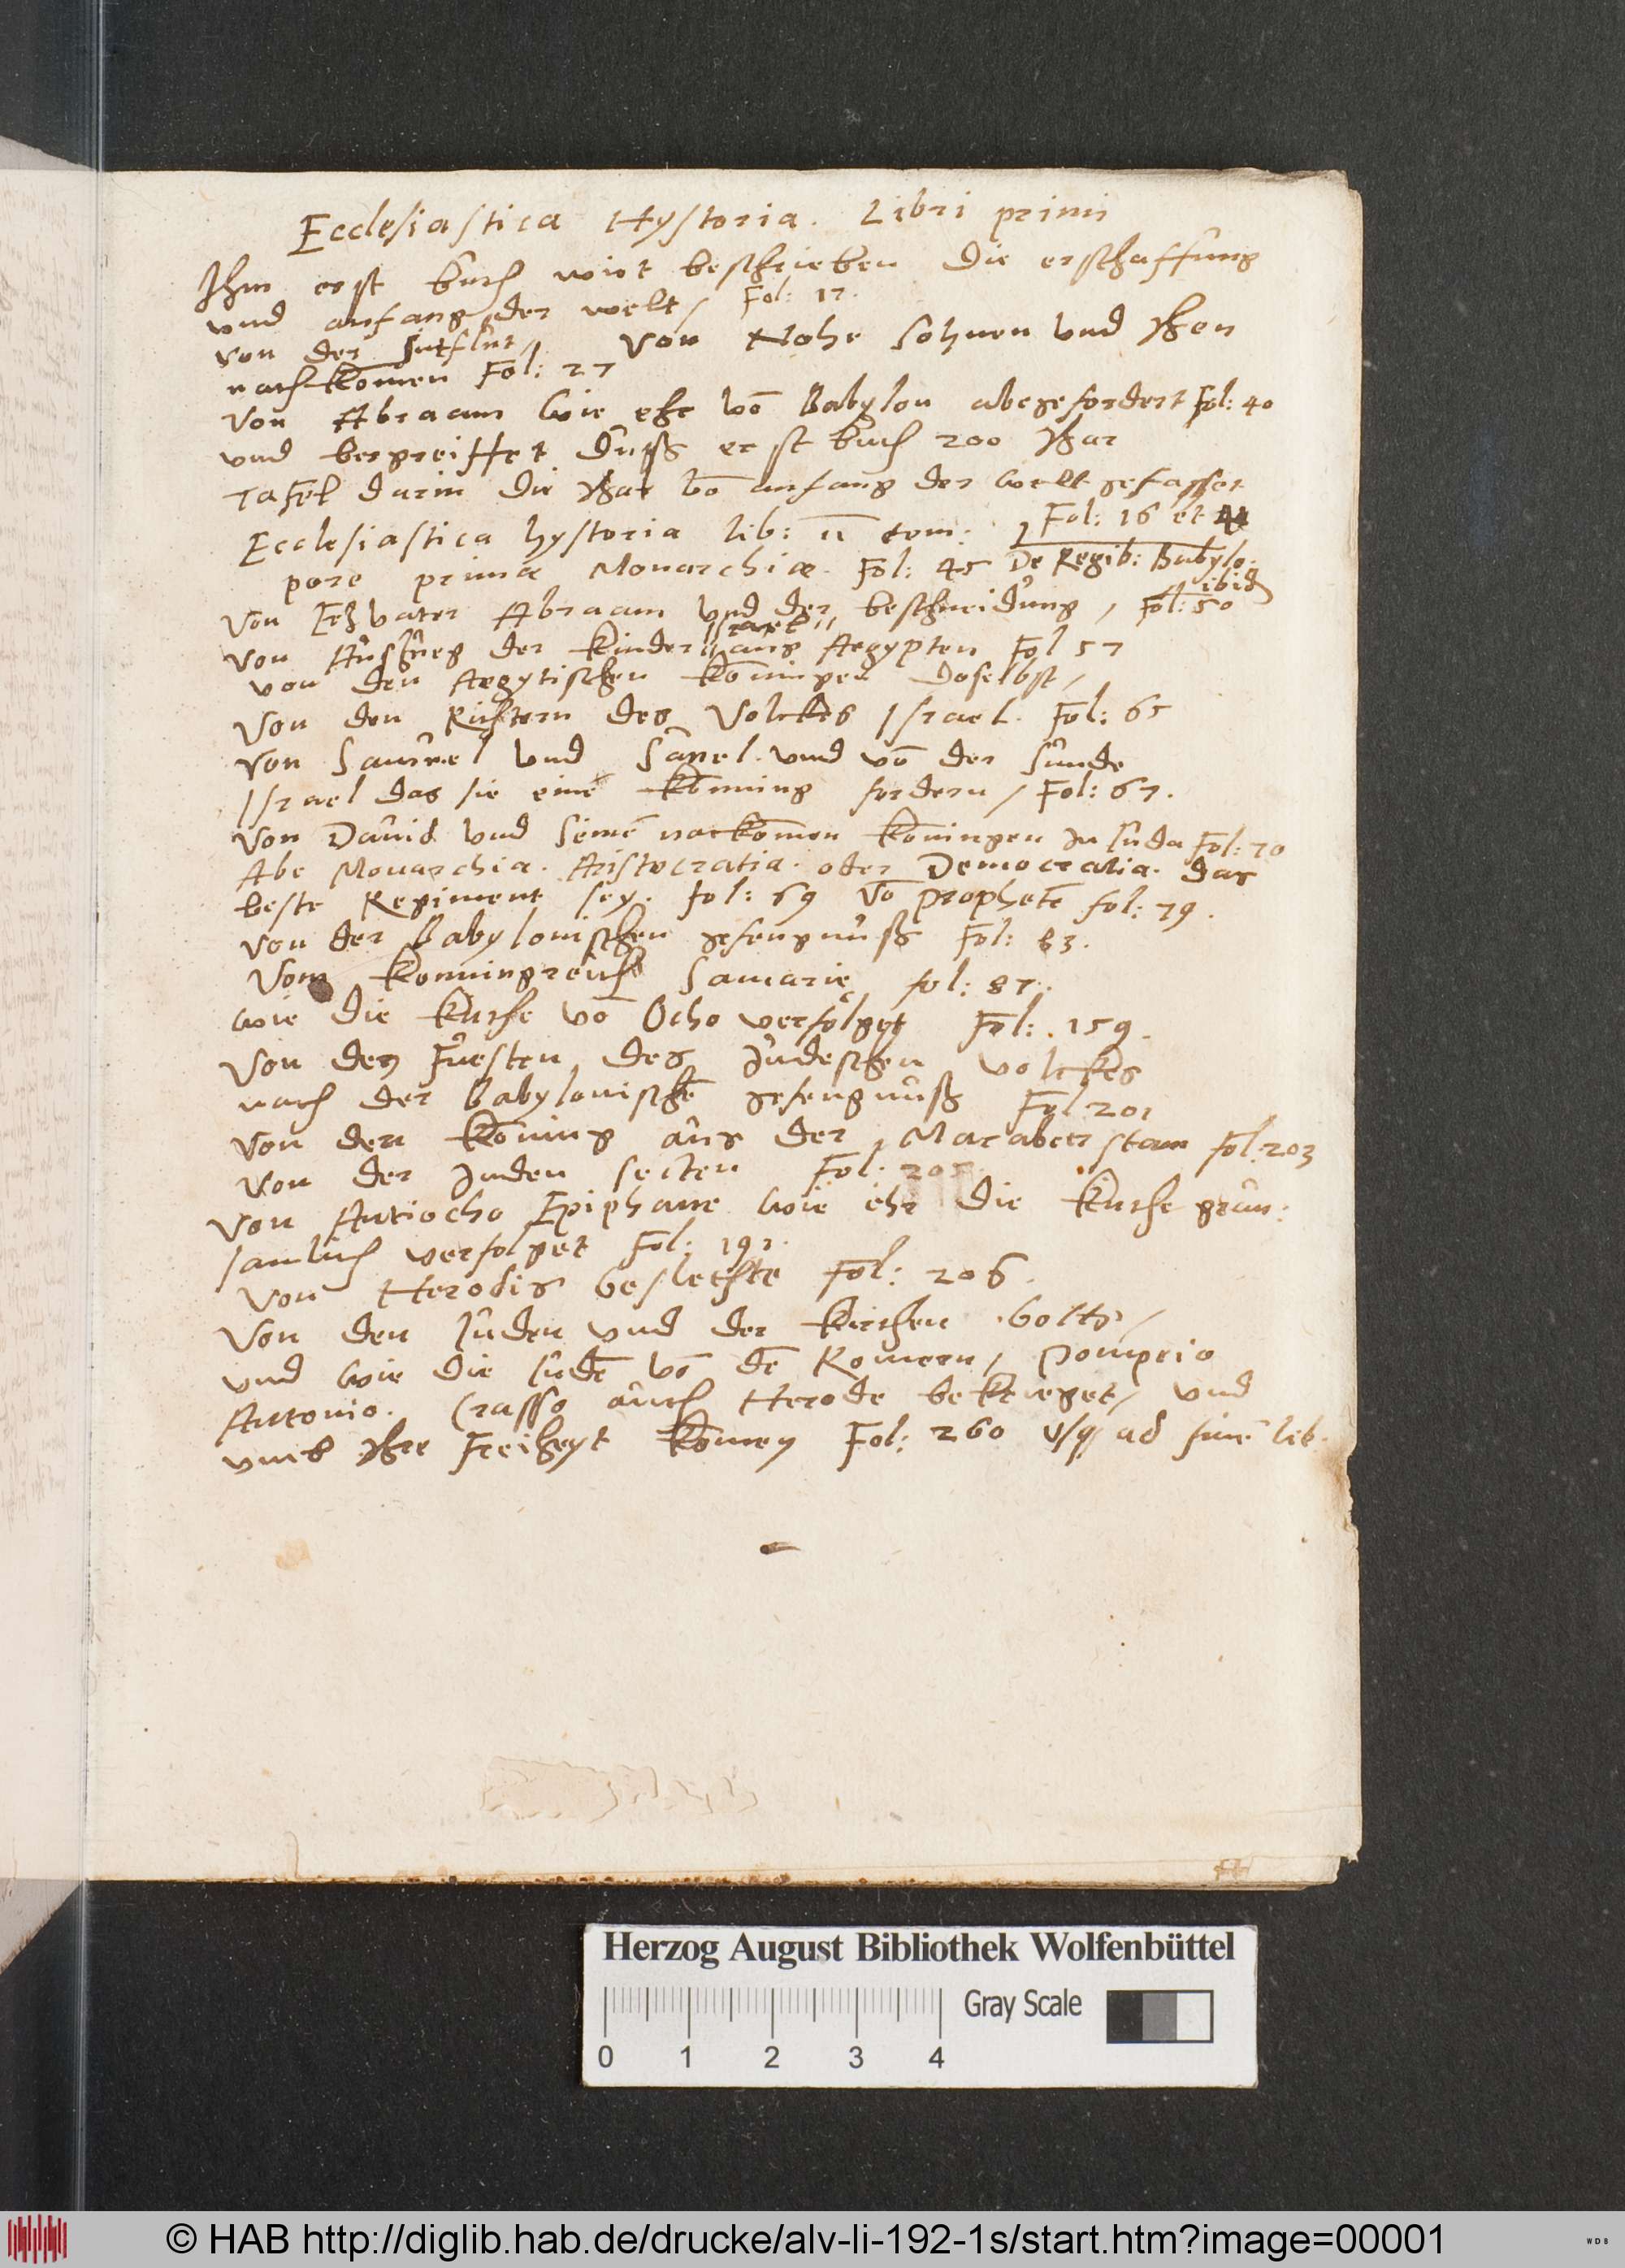 Ecclesiastica Hystoria. Libri primi
Ihm erst buch wirt beschrieben die erschaffung
vnd anfang der welt, Fol: 17.
von der sutflut, Von Nohe sohnen vnd yhren
nachkomen Fol: 27
Von Abraam wie ehr vō Babylon abegefordert Fol: 40
vnd bergreiffet duß erst buch 200 yhar
Tafel darin die yhar vō anfang der welt gefasset
Fol: 16 et
Ecclesiastica hystoria lib: ii tem:
pore prima Monarchiæ. Fol: 45 De Regib: Babylo. ibid
Von Ertzvater Abraam vnd der beschneidung, Fol: 50
von Außzueg der kinder Israel aus Aegypten Fol 57
von den Aegytischen köningen doselbst,
Von den Richtern des Volckes Israel. Fol: 65
von Samuel vnd Sauel. vnd vō der sunde
Israel das sie eine könning fordern, Fol: 67.
Von Dauid vnd seinē nackomen köningen in Juda Fol: 70
Abe Monarchia. Aristocratia. oder Democratia. das
beste Regiment sey. fol: 69 Vō prophetē fol: 79.
von der Babylonischen gefengnuß Fol: 83.
Vom konningreich Samarie fol: 87.
wie die kirche vō Ocho verfolget Fol: 159.
Von den Fuesten des Judeschen volckes
nach der Babylonischē gefengnuß Fol 201
Von den köning aus der Macabeer stam fol: 203
von der Juden secten Fol: 205
Von Antiocho Epiphane wie ehr die kirche grau:
samlich verfolget Fol: 191.
von Herodis geslechte Fol: 206.
Von den Juden vnd der kirchen Golts,
vnd wie die Judē vō dē Romern, Pompeio
Antonio. Crasso auch Herode bekrieget, vnd
vmb yhre Freiheyt komen Fol: 260 vsq ad finē lib.
Herzog August Bibliothek Wolfenbüttel
Gray Scale
0 1 2 3 4
© HAB http://diglib.hab.de/drucke/alv-li-192-1s/start.htm?image=00001
WDB